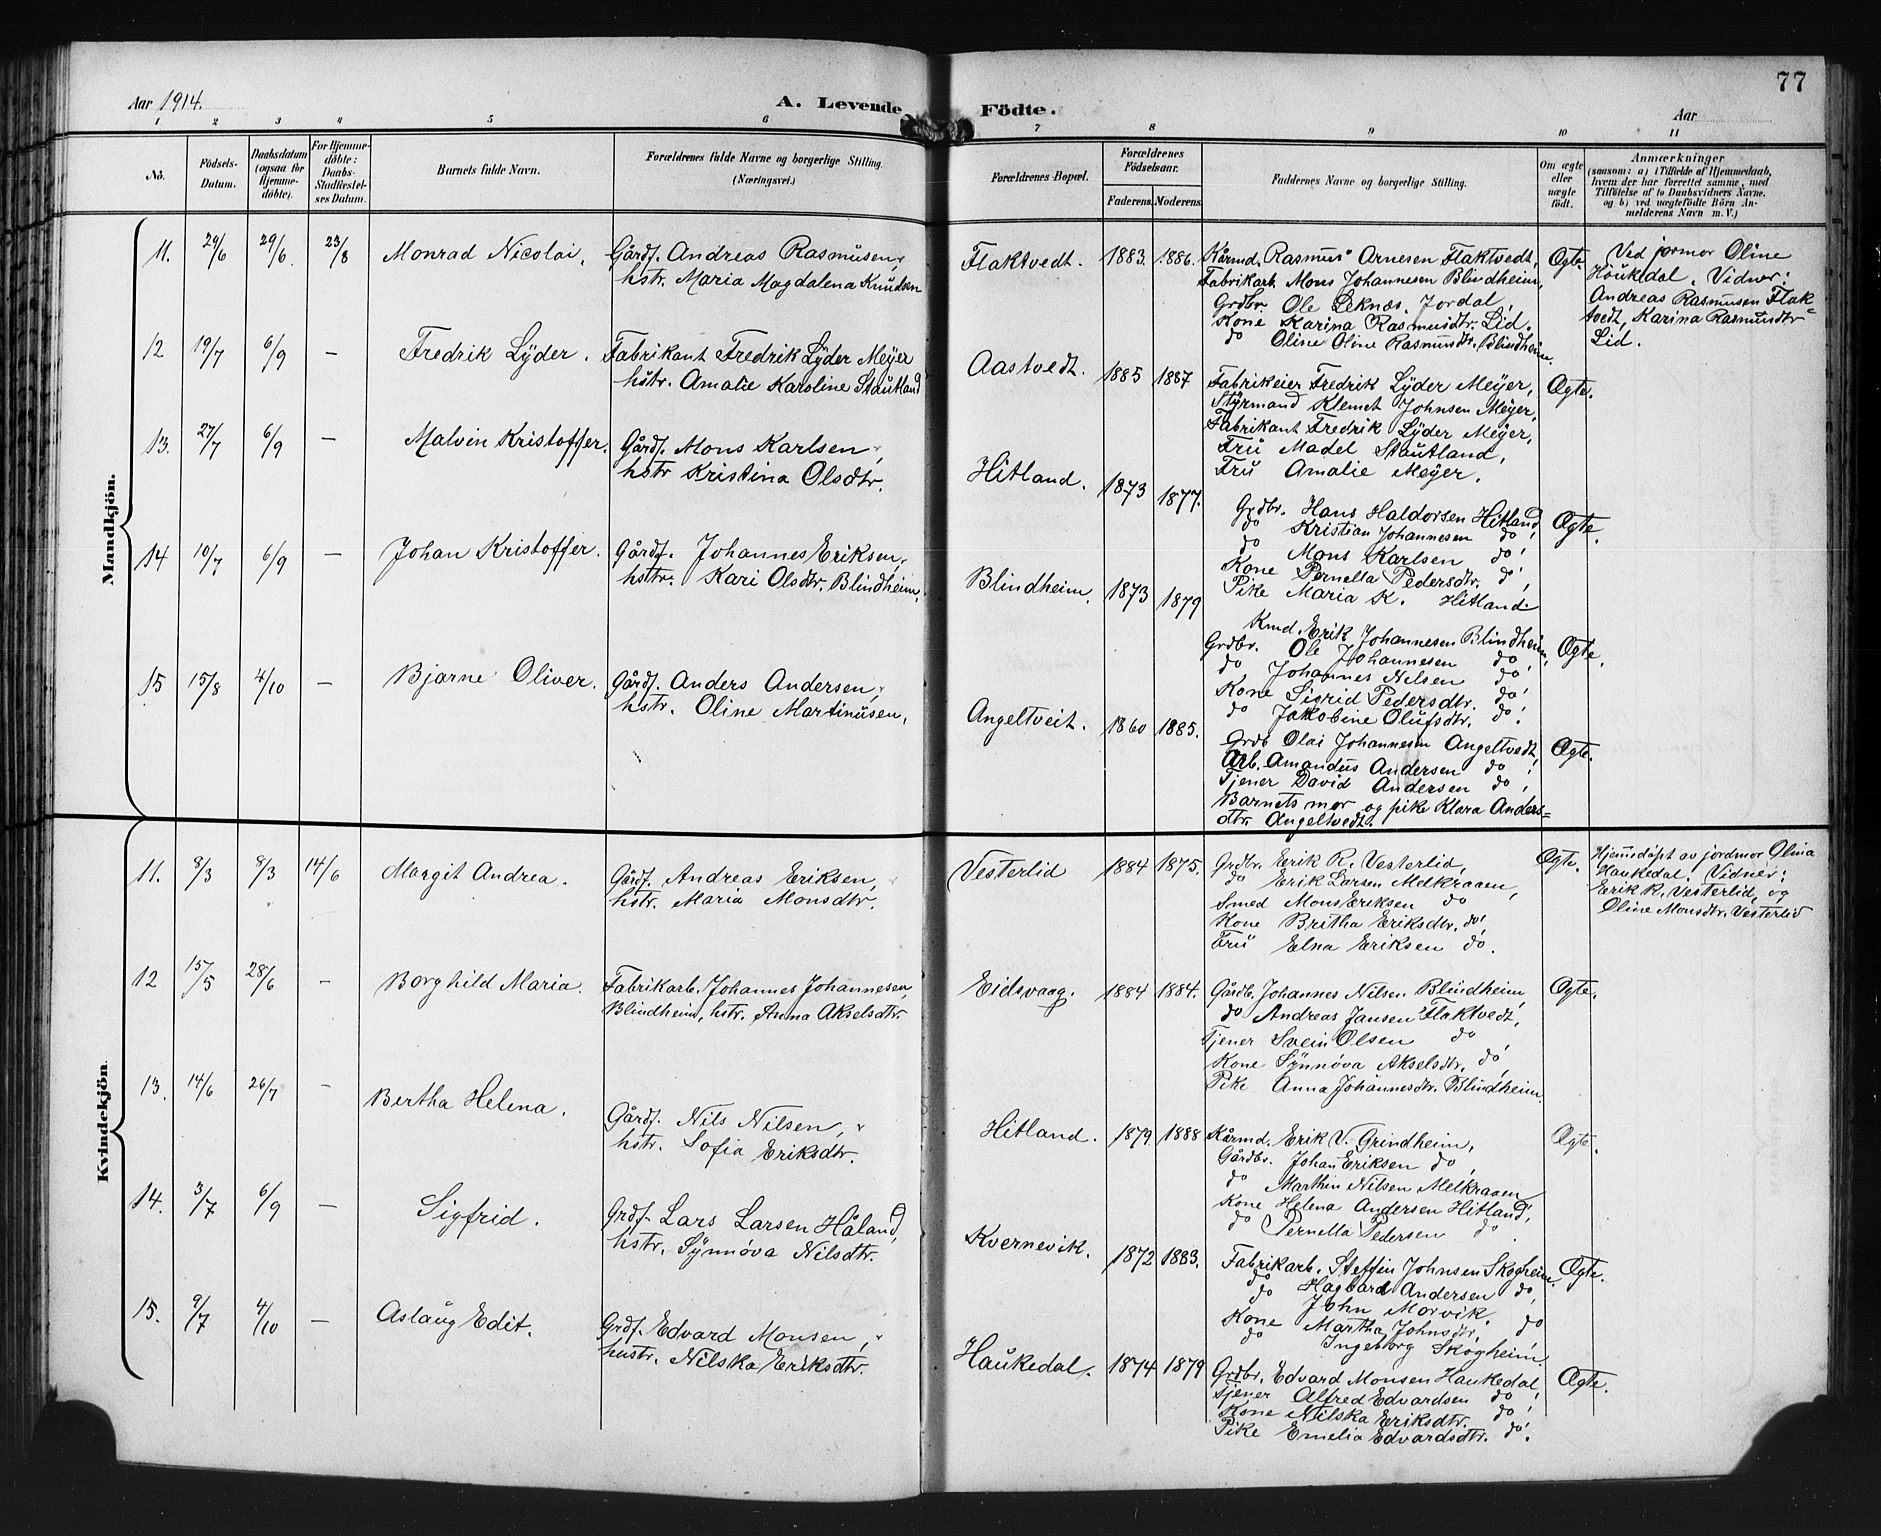 77
Aar 1914.
A. Levende Födte.
Aar
1 2 3 4 5 6 7 8 9 10 11
No.
Födsels-
Datum.
Daabsdatum
(ogsaa for
Hjemme-
döbte).
For Hjemme-
döbte:
Daabs-
Stadfæstel-
ses Datum.
Barnets fulde Navn.
Forældrenes fulde Navne og borgerlige Stilling.
(Næringsvei.)
Forældrenes Bopæl.
Forældrenes
Födselsaar.
Faderens. Moderens.
Faddernes Navne og borgerlige Stilling.
Om ægte
eller
uægte
födt.
Anmærkninger
(saasom: a) i Tilfælde af Hjemmedaab,
hvem der har forrettet samme, med
Tilföielse af to Daabsvidners Navne.
og b) ved uægtefödte Börn An-
melderens Navn m. V.)
Mandkjön.
11. 29/6 29/6 23/8 Monrad Nicolai. Gårdf. Andreas Rasmusen,
hstr. Maria Magdalena Knudsen
Flaktvedt. 1883. 1886. Kårmd. Rasmus Arnesen Flaktvedt,
Fabrikarb. Mons Johannesen Blindheim,
Grdbr. Ole Leknæs, Jordal,
Kone Karina Rasmusdtr. Lid.
do Oline Oline Rasmusdtr. Blindheim.
Ægte.
Ved jormor Oline
Houkedal. Vidner:
Andreas Rasmusen Flak
tvedt, Karina Rasmusdtr
Lid.
12 19/7 6/9 — Fredrik Lyder. Fabrikant Fredrik Lyder Meyer
hstr. Amalie Karoline Stautland
Aastvedt. 1885 1887 Fabrikeier Fredrik Lyder Meyer,
Styrmand Klemet Johnsen Meyer,
Fabrikant Fredrik Lyder Meyer,
Fru Madel Stautland,
Fru Amalie Meyer.
Ægte.
13. 27/7 6/9 — Malvin Kristoffer. Gårdf. Mons Karlsen,
hstr Kristina Olsdtr.
Hitland. 1873 1877. Grdbr. Hans Haldorsen Hitland,
do Kristian Johannesen do,
do Mons Karlsen do,
Kone Pernella Pedersdtr. do,
Pike Maria K. Hitland.
Ægte.
14 10/7 6/9 — Johan Kristoffer. Gårdf. Johannes Eriksen,
hstr. Kari Olsdtr. Blindheim.
Blindheim. 1873 1879 Kmd. Erik Johannesen Blindheim,
Grdbr. Ole Johannesen do,
do Johannes Nilsen do,
Kone Sigrid Pedersdtr. do,
do Jakobine Olufsdtr. do.
Ægte.
15 15/8 4/10 — Bjarne Oliver. Gårdf. Anders Andersen,
hstr. Oline Martinusen.
Angeltveit. 1860 1885. Grdb Olai Johannesen Angeltvedt,
Arb. Amandus Andersen do,
Tjener David Andersen do,
Barnets mor og pike Klara Anders=
dtr. Angeltvedt.
Ægte.
Kvindekjön.
11. 8/3 8/3 14/6 Margit Andrea. Gårdf. Andreas Eriksen,
hstr. Maria Monsdtr.
Vesterlid 1884 1875. Grdbr. Erik R. Vesterlid,
do Erik Larsen Melkraaen,
Smed Mons Eriksen do
Kone Britha Eriksdtr. do,
Fru Elna Eriksen do.
Ægte.
Hjemedøpt av jordmor Olina
Haukedal. Vidner:
Erik R. Vesterlid, og
Oline Monsdtr. Vesterlid
12 15/5 28/6 — Borghild Maria. Fabrikarb. Johannes Johannesen
Blindheim, hstr. Anna Akselsdtr.
Eidsvaag. 1884 1884. Gårdb. Johannes Nilsen Blindheim,
do Andreas Jansen Flaktvedt,
Tjener Svein Olsen do,
Kone Synnøva Akselsdtr. do,
Pike Anna Johannesdtr. Blindheim.
Ægte.
13. 14/6 26/7 — Bertha Helena. Gårdf. Nils Nilsen,
hstr. Sofia Eriksdtr.
Hitland. 1879 1888 Kårmd. Erik V. Grindheim,
Gårdbr. Johan Eriksen do,
do Marthin Nilsen Melkraaen,
Kone Helena Andersen Hitland,
do Pernella Pedersen do.
Ægte.
14. 3/7 6/9 — Sigfrid. Grdf. Lars Larsen Håland,
hstr. Synnøva Nilsdtr.
Kvernevik. 1872 1883. Fabrikarb. Steffin Johnsen Skogheim,
do Hagbard Andersen do,
do John Morvik.
Kone Martha Johnsdtr. do
do Ingeborg Skogheim.
Ægte.
15. 9/7 4/10 — Aslaug Edit. Grdf. Edvard Monsen,
hustr. Nilska Eriksdtr.
Haukedal. 1874 1879 Grdbr. Edvard Monsen Haukedal,
Tjener Alfred Edvardsen do,
Kone Nilska Eriksdtr. do,
Pike Emelia Edvardsdtr. do.
Ægte.